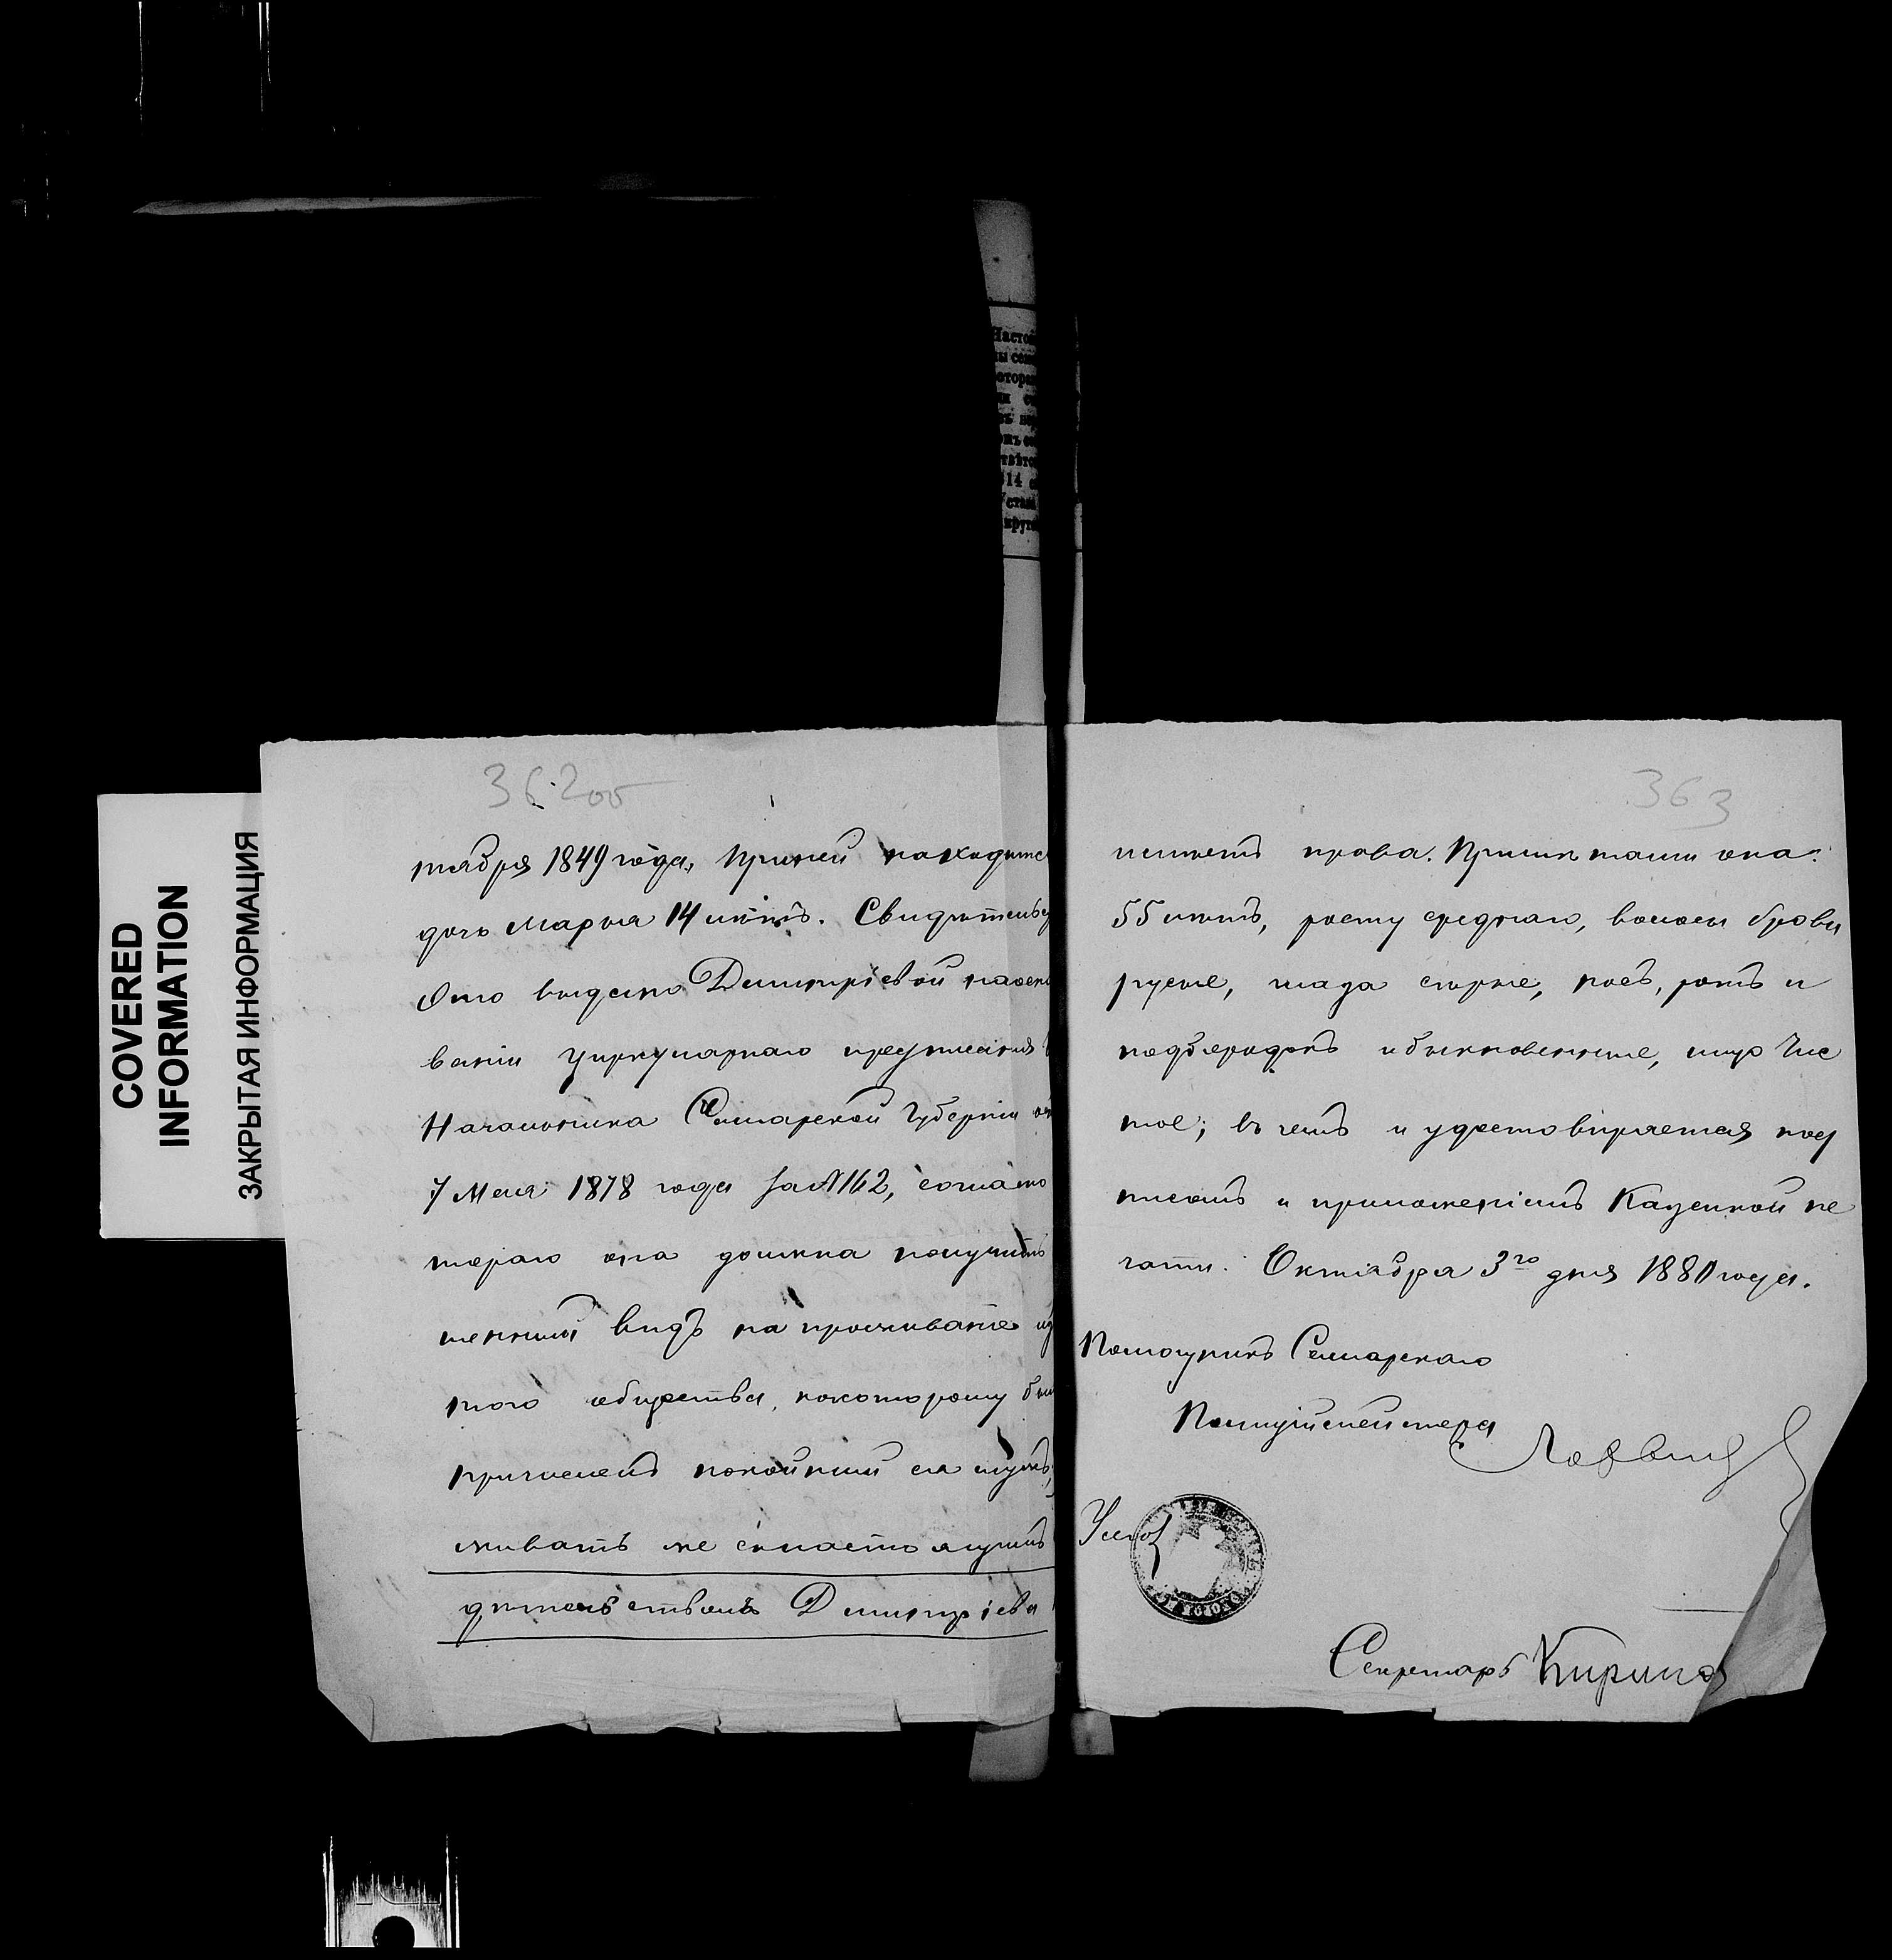 COVERED
INFORMATION
ЗАКРЫТАЯ ИНФОРМАЦИЯ
Настоя
14
362об
тября 1849 года, при ней находитс
дочь Марья 14 лѣтъ. Свидѣтельс
это выдано Димитріевой на осно
ваніи циркулярнаго предписанія
Начальника Самарской Губерніи от
7 Мая 1878 года за № 162, согласно
тораго она должна получить
менный видъ на проживаніе из
того общества, по которому был
причисленъ покойный ея мужъ,
живать же с настоящимъ
дѣтельствомъ Димитріева
363
имѣетъ права. Примѣтами она:
55 лѣтъ, росту средняго, волосы брови
русые, глаза сѣрые, носъ, ротъ и
подбородокъ обыкновенные, лицо чис
тое; въ чемъ и удостовѣряется под
писомъ и приложеніемъ Казенной пе
чати. Октября 3го дня 1880 года.
Помощникъ Самарскаго
Полиціймейстера
Секретарь Кирило